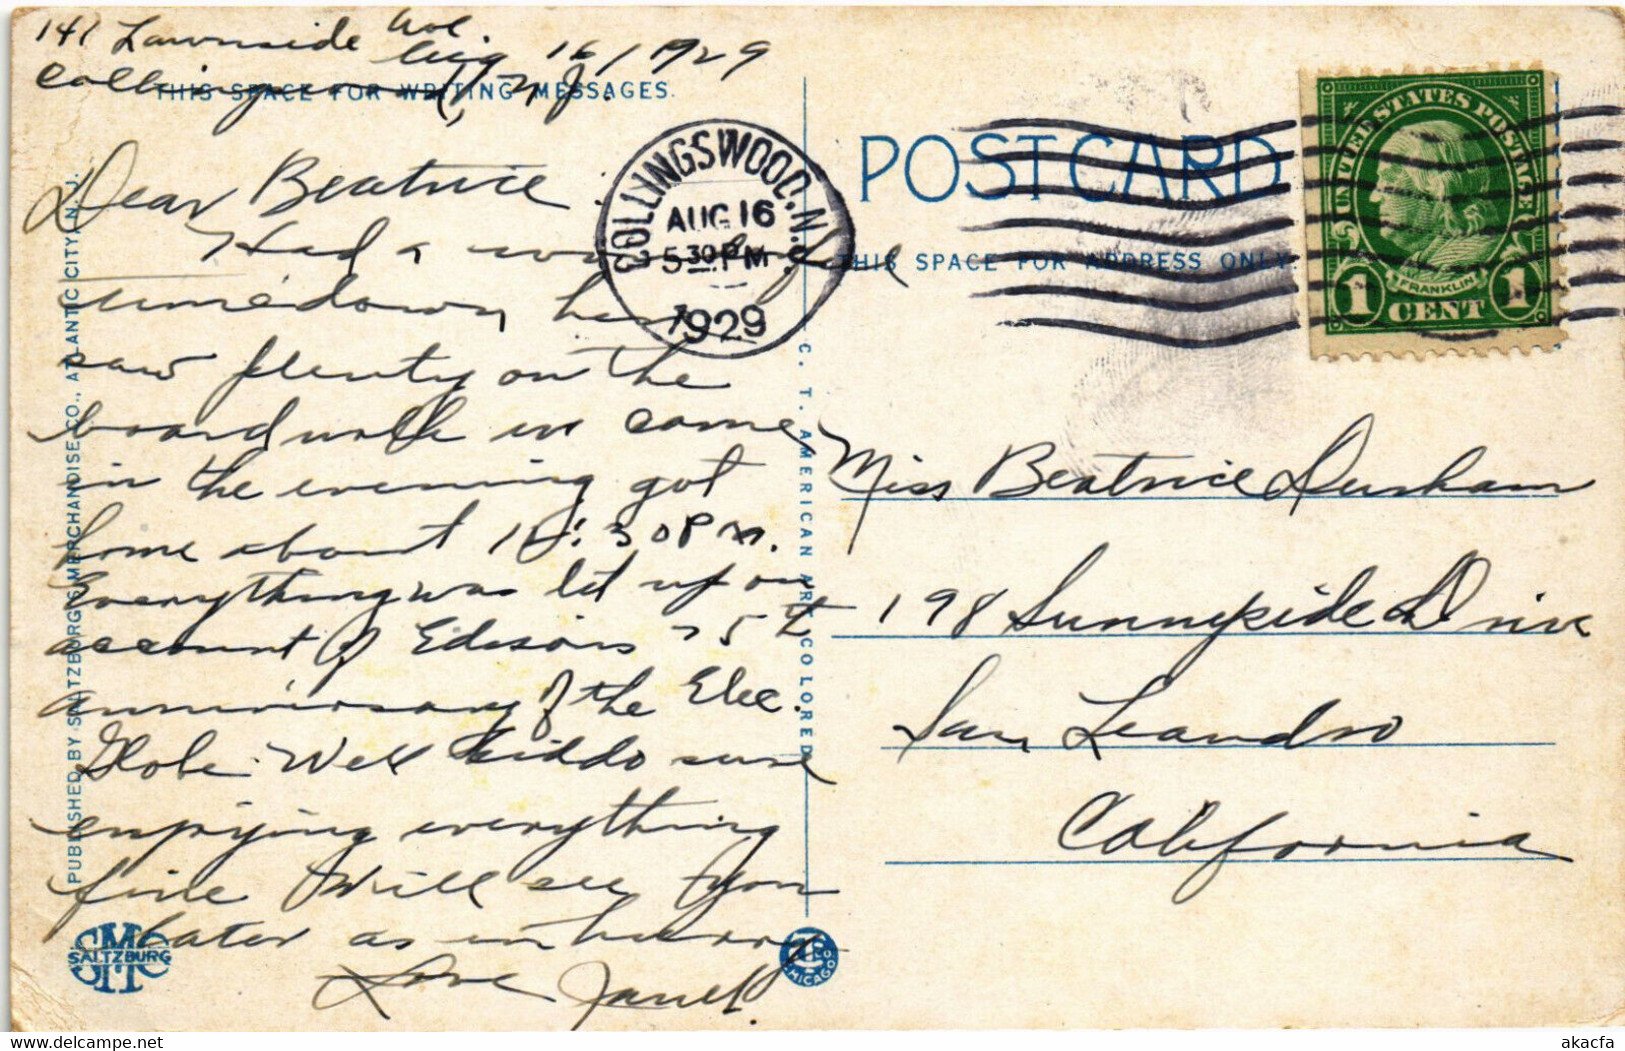 141 Lawnside Ave.
Aug 16/1929
Collingswood, N.J.
THIS SPACE FOR WRITING MESSAGES.
Dear Beatrice
Had a wonderful
time down here
saw plenty on the
boardwalk in came
in the evening got
home about 11:30 P.M.
Everything was lit up on
account of Edisons 75th
anniversary of the Elec.
Globe. Well kiddo sure
enjoying everything
fine Will see you
later as in hurry
Love Janet
PUBLISHED BY SALTZBURG'S MERCHANDISE CO., ATLANTIC CITY, N. J.
SMC
SALTZBURG
C. T. AMERICAN ART COLORED
CHICAGO
COLLINGSWOOD, N.J.
AUG 16
5 30 PM
1929
POST CARD
THIS SPACE FOR ADDRESS ONLY.
UNITED STATES POSTAGE
FRANKLIN
1 CENT 1
Miss Beatrice Durham
198 Sunnyside Drive
San Leandro
California
akacfa